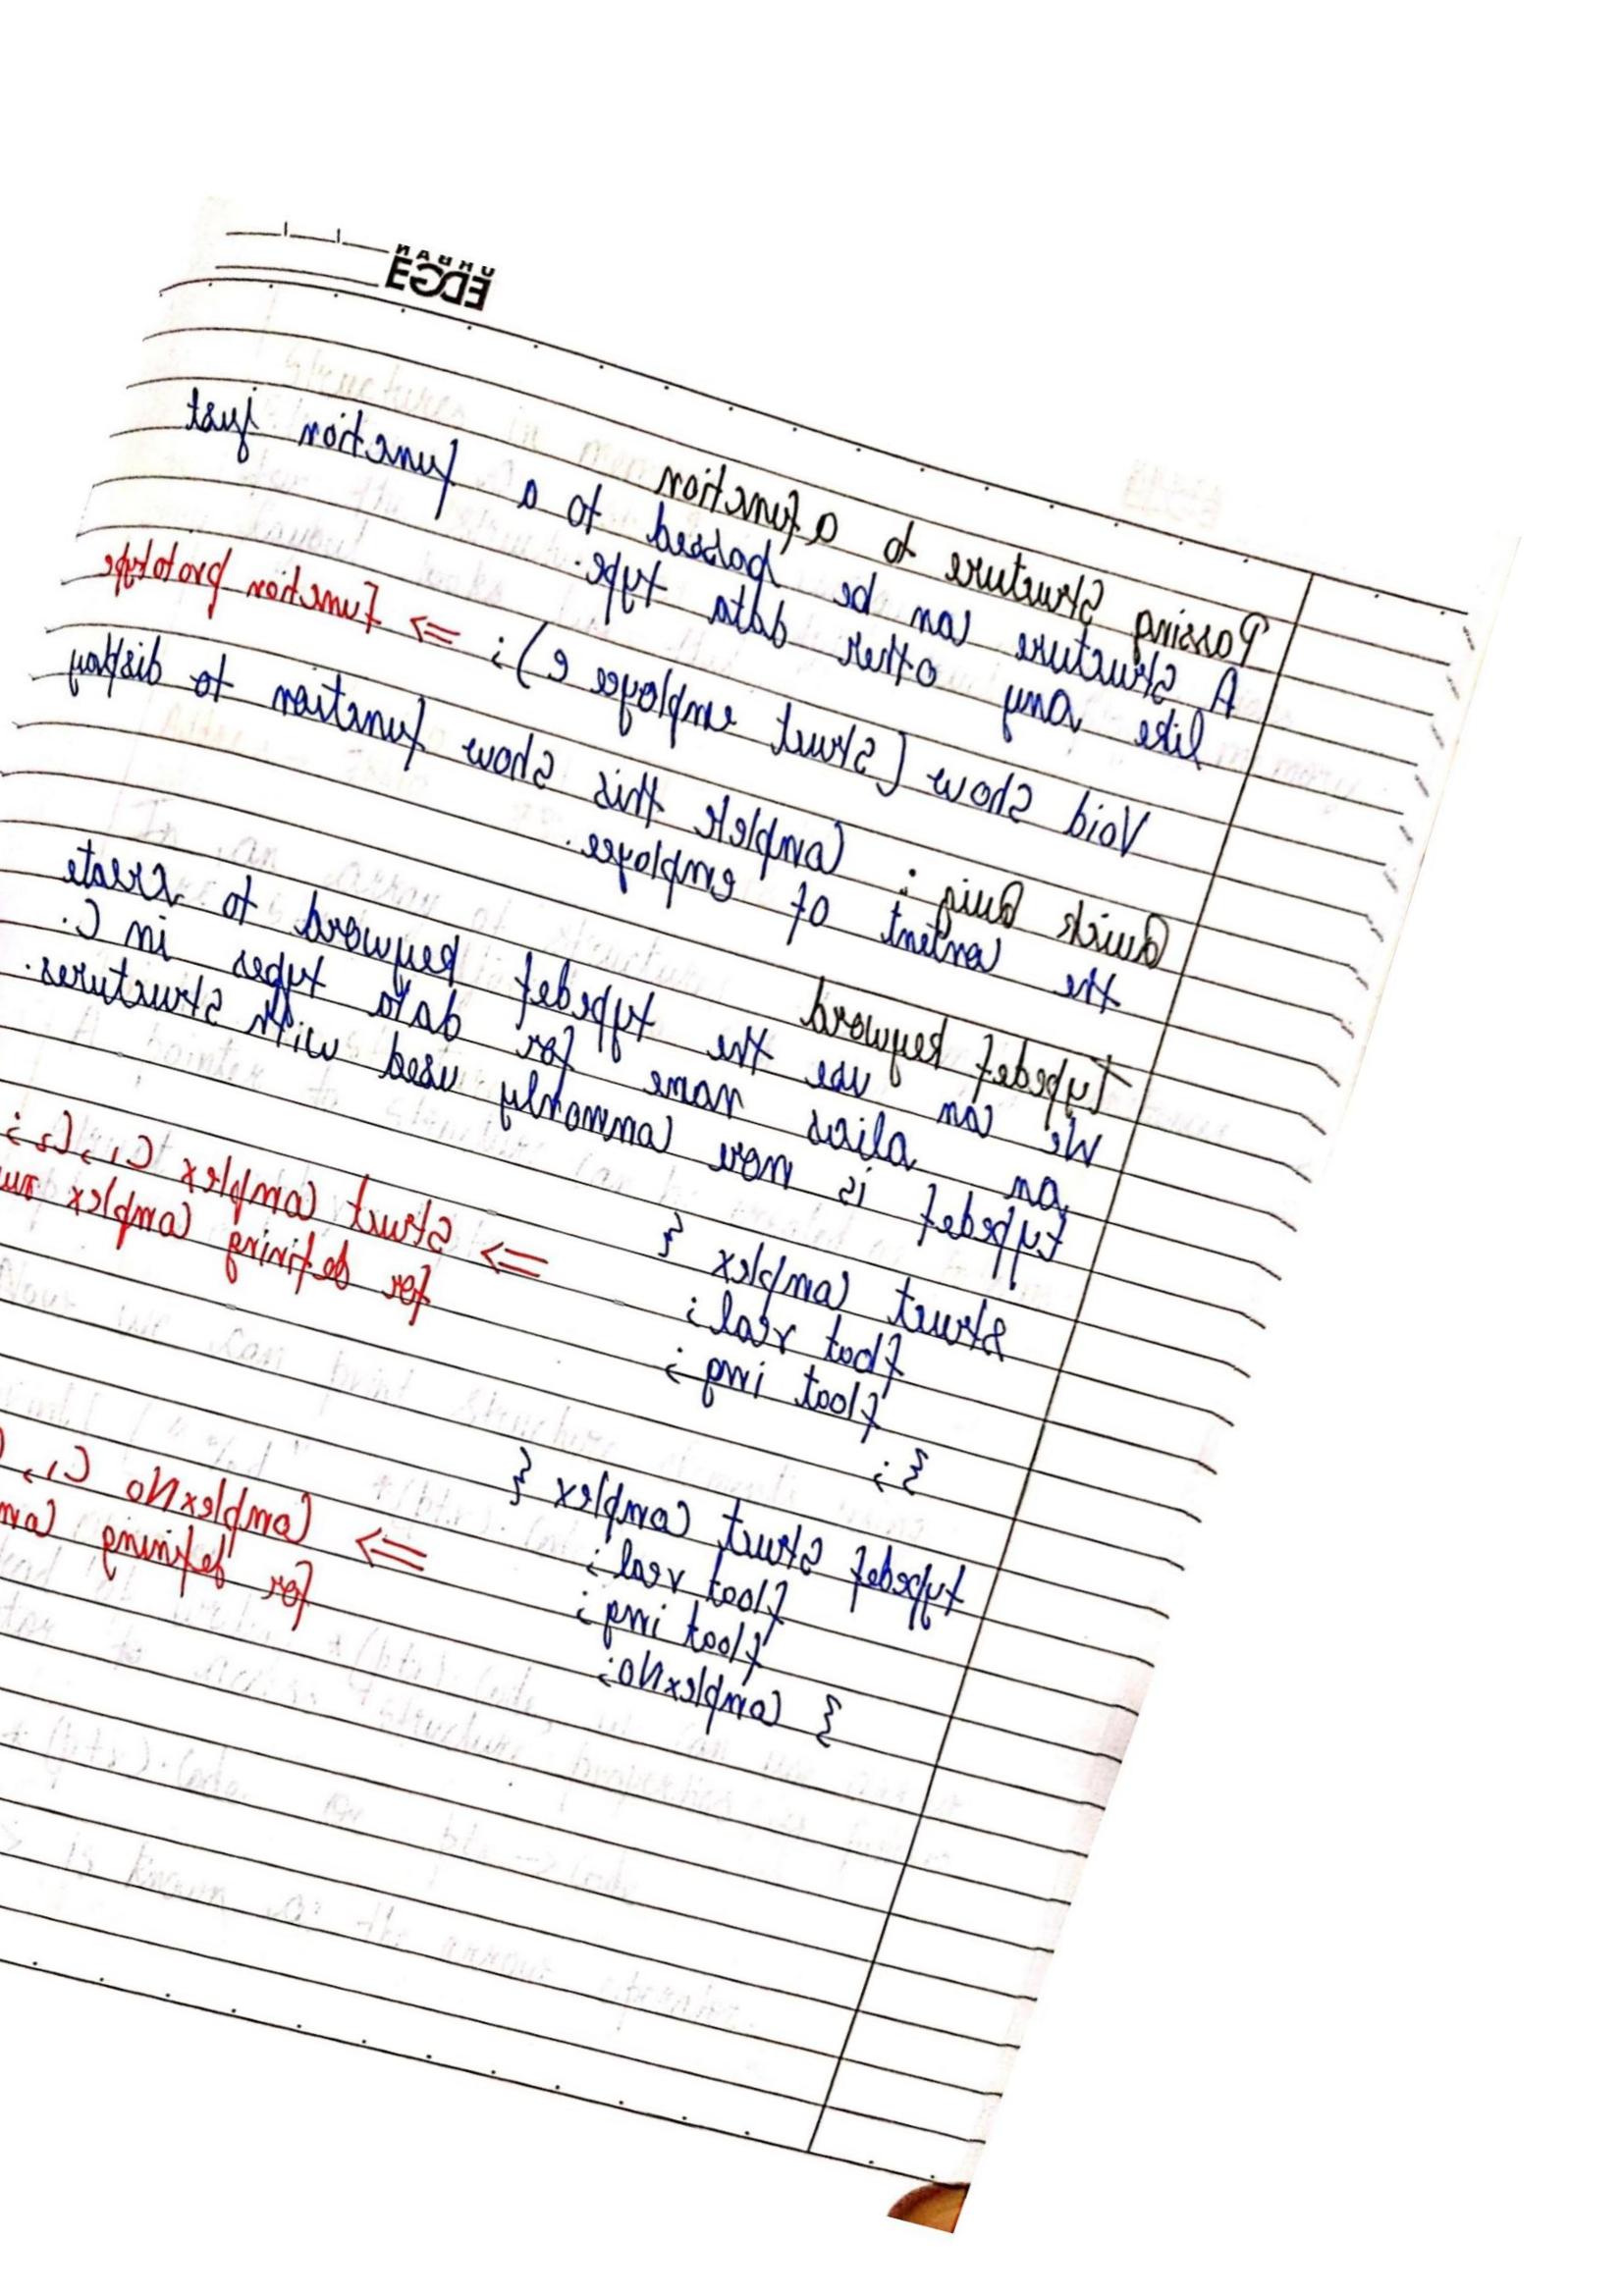 URBAN
EDGE
Passing Structure to a function
A Structure can be passed to a function just
like any other data type.
Void Show (Struct employee e); => Function prototype
Quick Quiz : Complete this show function to display
the content of employee.
Typedef keyword
We can use the typedef keyword to create
an alias name for data types in C.
typedef is more commonly used with structures.
Struct Complex { => Struct Complex C1, C2;
float real; for defining Complex
float img;
};
typedef Struct Complex { => ComplexNo C1,
float real; for defining
float img;
} ComplexNo;